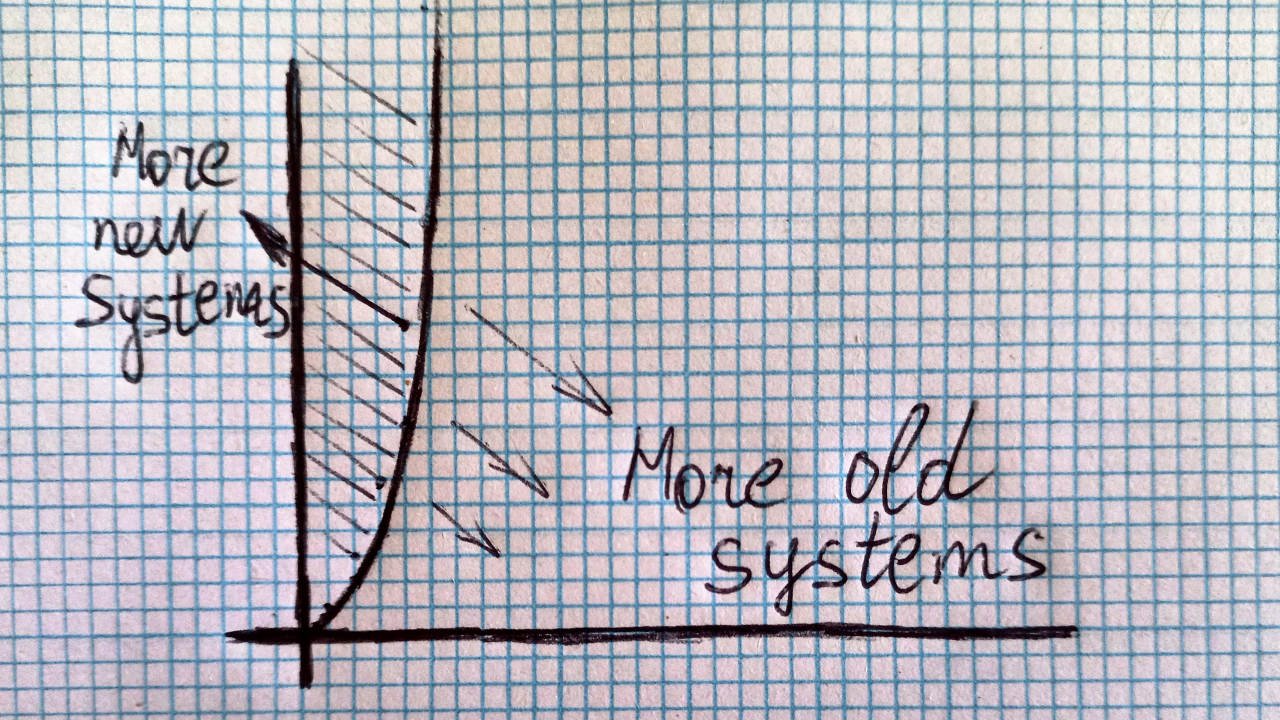 More
new
Systems
More old
systems